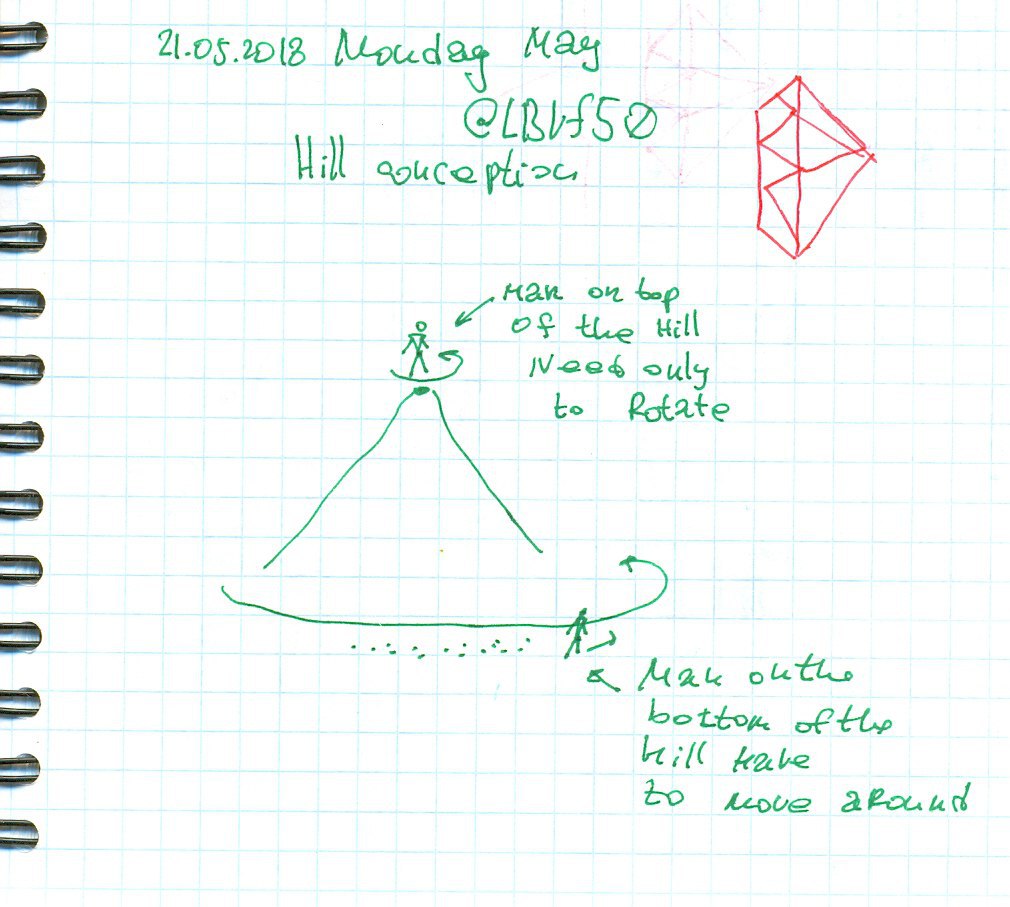 21.05.2018 Monday May
@LBVf50
Hill conception
Man on top
of the Hill
Need only
to Rotate
Man on the
bottom of the
Hill have
to move around